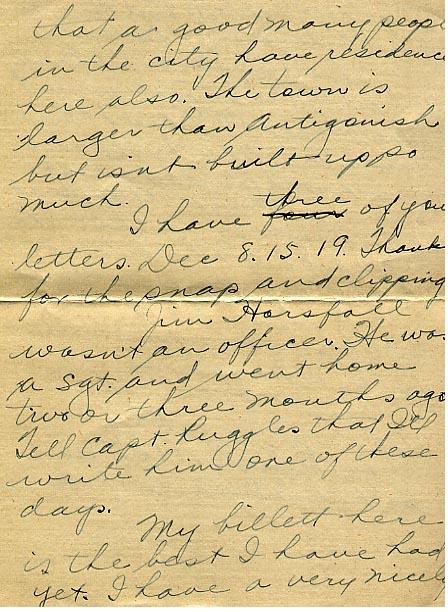 that a good many peope
in the city have residenc
here also. The town is
larger than Antigonish
but isn't built up so
much.
I have three four of you
letters. Dec 8. 15. 19. Thank
for the snap and clipping
Jim Horsfall
wasn't an officer. He was
a Sgt. and went home
two or three months ago
Tell Capt. Ruggles that I'll
write him one of these
days.
My billett here
is the best I have had
yet. I have a very nicely